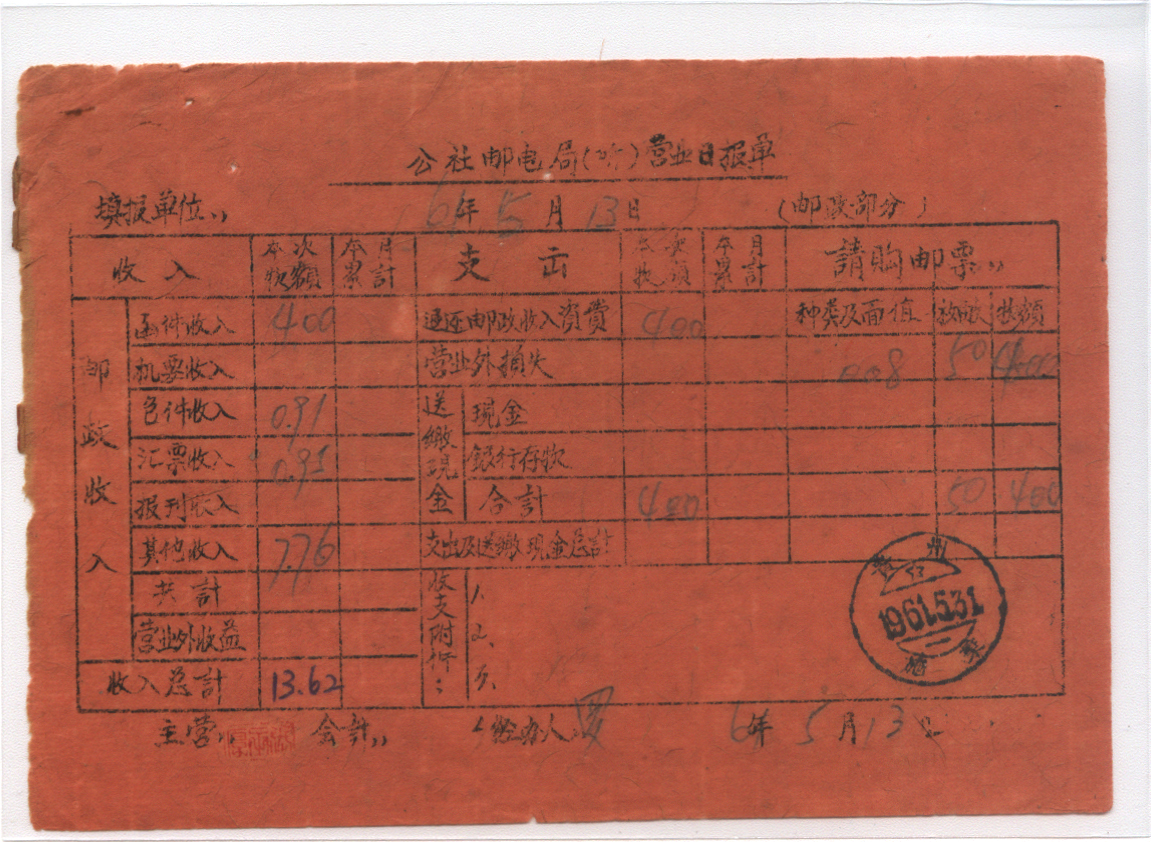 公社邮电局(所)营业日报单
填报单位:
61年5月13日
(邮政部分)
收入 本次款额 本月累計 支出 本次款额 本月累計 請購邮票:
邮政收入 函件收入 400 退还邮政收入資費 400 种类及面值 枚数 款額
机票收入 营业外損失 008 50 400
包件收入 0.91 送繳現金 現金
汇票收入 0.95 銀行存款
报刊收入 合計 400 50 400
其他收入 7.76 支出及送繳現金总計
共計 收支附件: 1.
营业外收益 2.
收入总計 13.62 3.
貴州
1961.5.31
主营: 会計: 经办人: 罗 61年5月13日